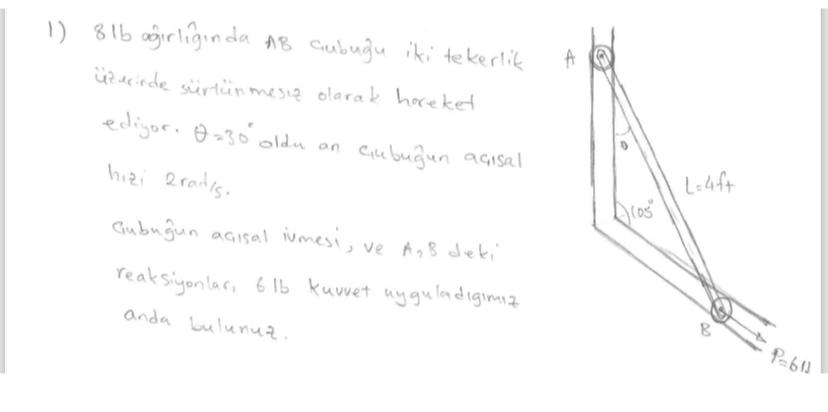 1) 8 lb ağırlığında AB çubuğu iki tekerlik
üzerinde sürtünmesiz olarak hareket
ediyor. θ=30° oldu an çubuğun açısal
hızi 2 rad/s.
Çubuğun açısal ivmesi, ve A, B deki
reaksiyonları, 6 lb kuvvet uyguladıgımız
anda bulunuz.
A
θ
L=4ft
105°
B
P=6lb